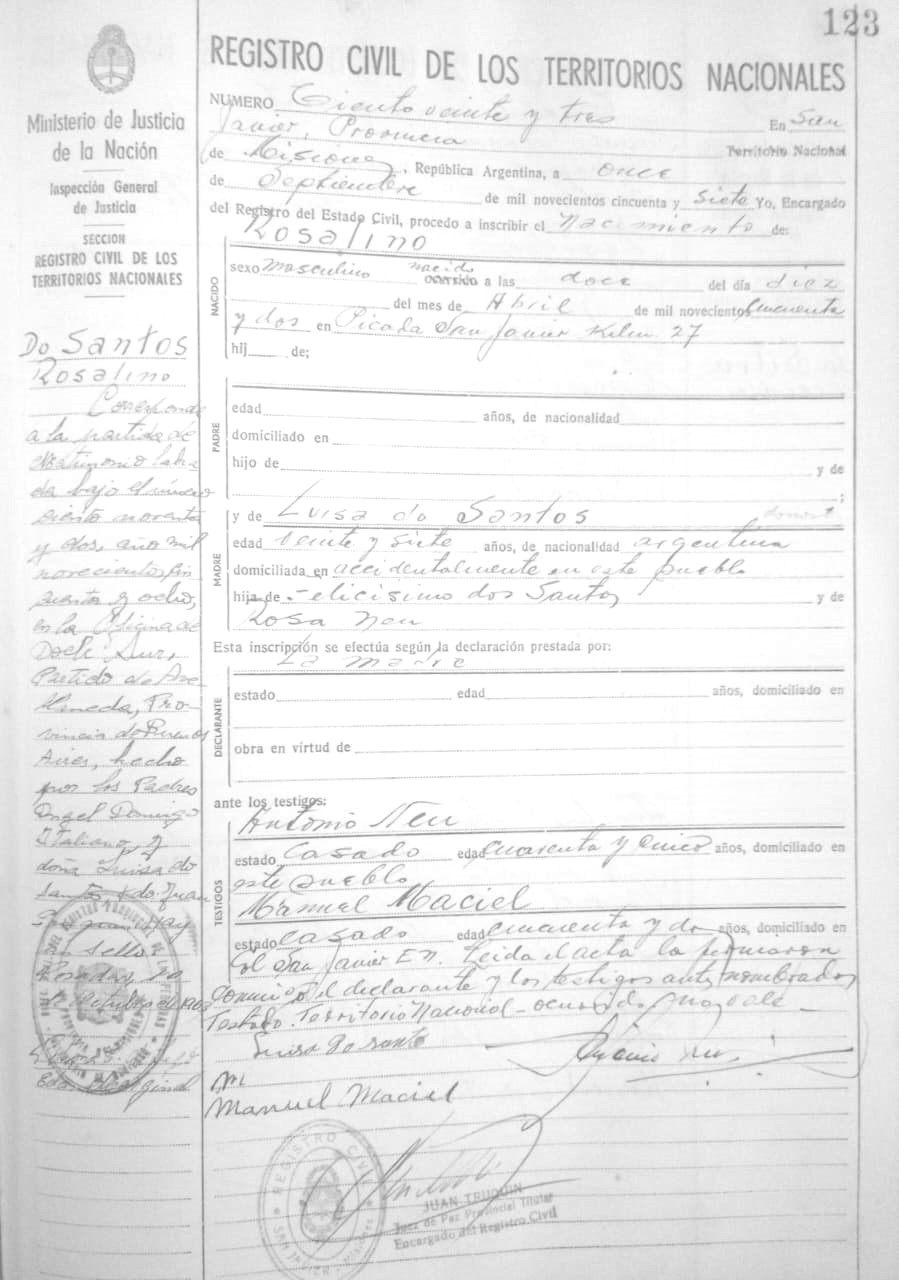 123
REGISTRO CIVIL DE LOS TERRITORIOS NACIONALES
Ministerio de Justicia
de la Nación
Inspección General
de Justicia
SECCION
REGISTRO CIVIL DE LOS
TERRITORIOS NACIONALES
Do Santos
Rosalino
Corresponde
a la partida de
Matrimonio labra
da bajo el número
ciento noventa
y dos, año mil
novecientos cin
cuenta y ocho,
en la Oficina de
Dock Sur,
Partido de Ave
llaneda, Pro-
vincia de Buenos
Aires, hecho
por los Padres
Angel Domingo
Italiano y
doña Luisa do
Santos Fdo. Juan
Hay
un Sello
Posadas,
de Octubre de 1963
NUMERO Ciento veinte y tres En San
Javier, Provincia Territorio Nacional
de Misiones, República Argentina, a once
de Septiembre de mil novecientos cincuenta y siete Yo, Encargado
del Registro del Estado Civil, procedo a inscribir el nacimiento de:
Rosalino
NACIDO
sexo masculino nacido ocurrido a las doce del día diez
del mes de Abril de mil novecientos cincuenta
y dos en Picada San Javier Kilm. 27
hij de;
PADRE
edad años, de nacionalidad
domiciliado en
hijo de y de
;
MADRE
y de Luisa do Santos
edad veinte y siete años, de nacionalidad argentina
domiciliada en accidentalmente en este pueblo
hija de Felicisimo dos Santos y de
Rosa Neu
Esta inscripción se efectúa según la declaración prestada por:
La madre
DECLARANTE
estado edad años, domiciliado en
obra en virtud de
ante los testigos:
TESTIGOS
Antonio Neu
estado Casado edad cuarenta y cinco años, domiciliado en
este pueblo
Manuel Maciel
estado casado edad cincuenta y do años, domiciliado en
Col San Javier Leida el acta la firmaron
conmigo el declarante y los testigos ante nombrados
Testado: Territorio Nacional - ocurrido no vale
Luisa Do Santo
Manuel Maciel
REGISTRO CIVIL
SAN JAVIER - Misiones
JUAN TRUQUIN
Juez de Paz Provincial Titular
Encargado del Registro Civil